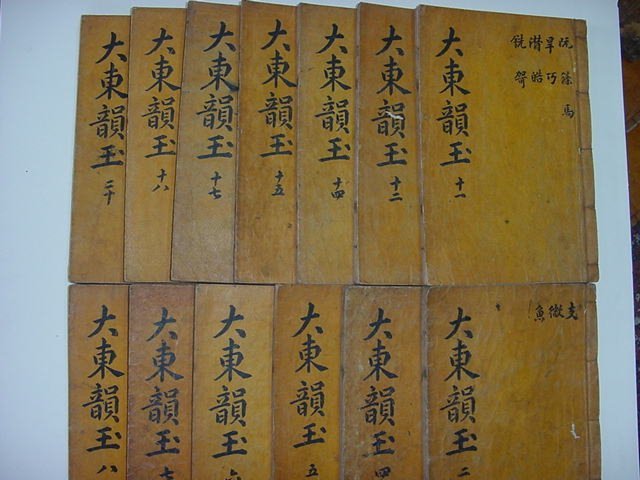 阮篠馬
旱巧
潸皓
銑哿
大東韻玉 十一
大東韻玉 十二
大東韻玉 十四
大東韻玉 十五
大東韻玉 十七
大東韻玉 十八
大東韻玉 二十
支微魚
大東韻玉 二
大東韻玉 四
大東韻玉 五
大東韻玉 六
大東韻玉 七
大東韻玉 八